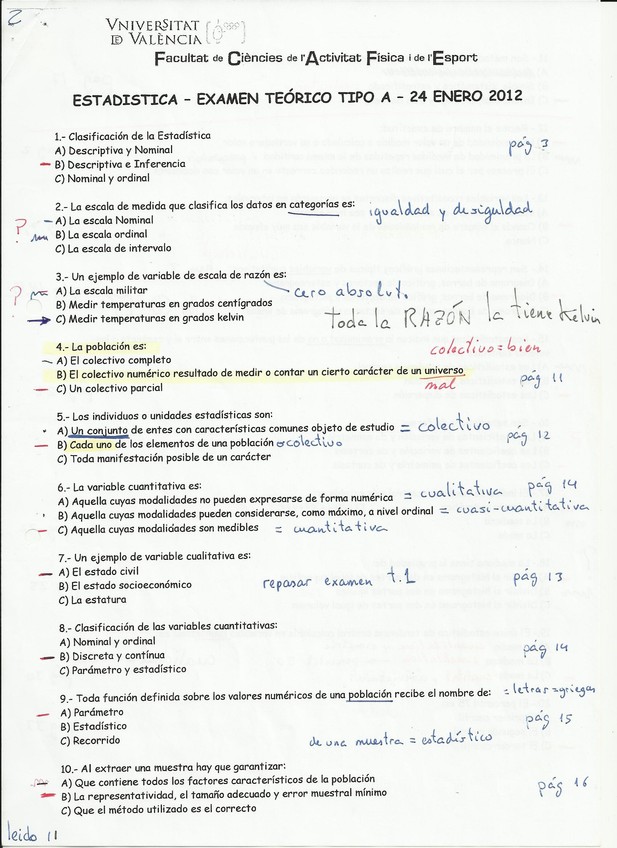 2
VNIVERSITAT
ID VALÈNCIA
Facultat de Ciències de l'Activitat Física i de l'Esport
ESTADISTICA - EXAMEN TEÓRICO TIPO A - 24 ENERO 2012
1.- Clasificación de la Estadística
A) Descriptiva y Nominal pág 3
B) Descriptiva e Inferencia
C) Nominal y ordinal
2.- La escala de medida que clasifica los datos en categorías es: igualdad y desigualdad
? A) La escala Nominal
B) La escala ordinal
C) La escala de intervalo
3.- Un ejemplo de variable de escala de razón es:
? A) La escala militar cero absolut.
B) Medir temperaturas en grados centígrados
C) Medir temperaturas en grados kelvin toda la RAZÓN la tiene Kelvin
4.- La población es: colectivo = bien
A) El colectivo completo
B) El colectivo numérico resultado de medir o contar un cierto carácter de un universo
C) Un colectivo parcial mal pág 11
5.- Los individuos o unidades estadísticas son:
A) Un conjunto de entes con características comunes objeto de estudio = colectivo
B) Cada uno de los elementos de una población o colectivo pág 12
C) Toda manifestación posible de un carácter
6.- La variable cuantitativa es:
A) Aquella cuyas modalidades no pueden expresarse de forma numérica = cualitativa pág 14
B) Aquella cuyas modalidades pueden considerarse, como máximo, a nivel ordinal = cuasi-cuantitativa
C) Aquella cuyas modalidades son medibles = cuantitativa
7.- Un ejemplo de variable cualitativa es:
A) El estado civil
B) El estado socioeconómico repasar examen t.1 pág 13
C) La estatura
8.- Clasificación de las variables cuantitativas:
A) Nominal y ordinal
B) Discreta y contínua pág 14
C) Parámetro y estadístico
9.- Toda función definida sobre los valores numéricos de una población recibe el nombre de: = letras = griegas
A) Parámetro
B) Estadístico pág 15
C) Recorrido de una muestra = estadístico
10.- Al extraer una muestra hay que garantizar:
A) Que contiene todos los factores característicos de la población
B) La representatividad, el tamaño adecuado y error muestral mínimo pág 16
C) Que el método utilizado es el correcto
leido 11